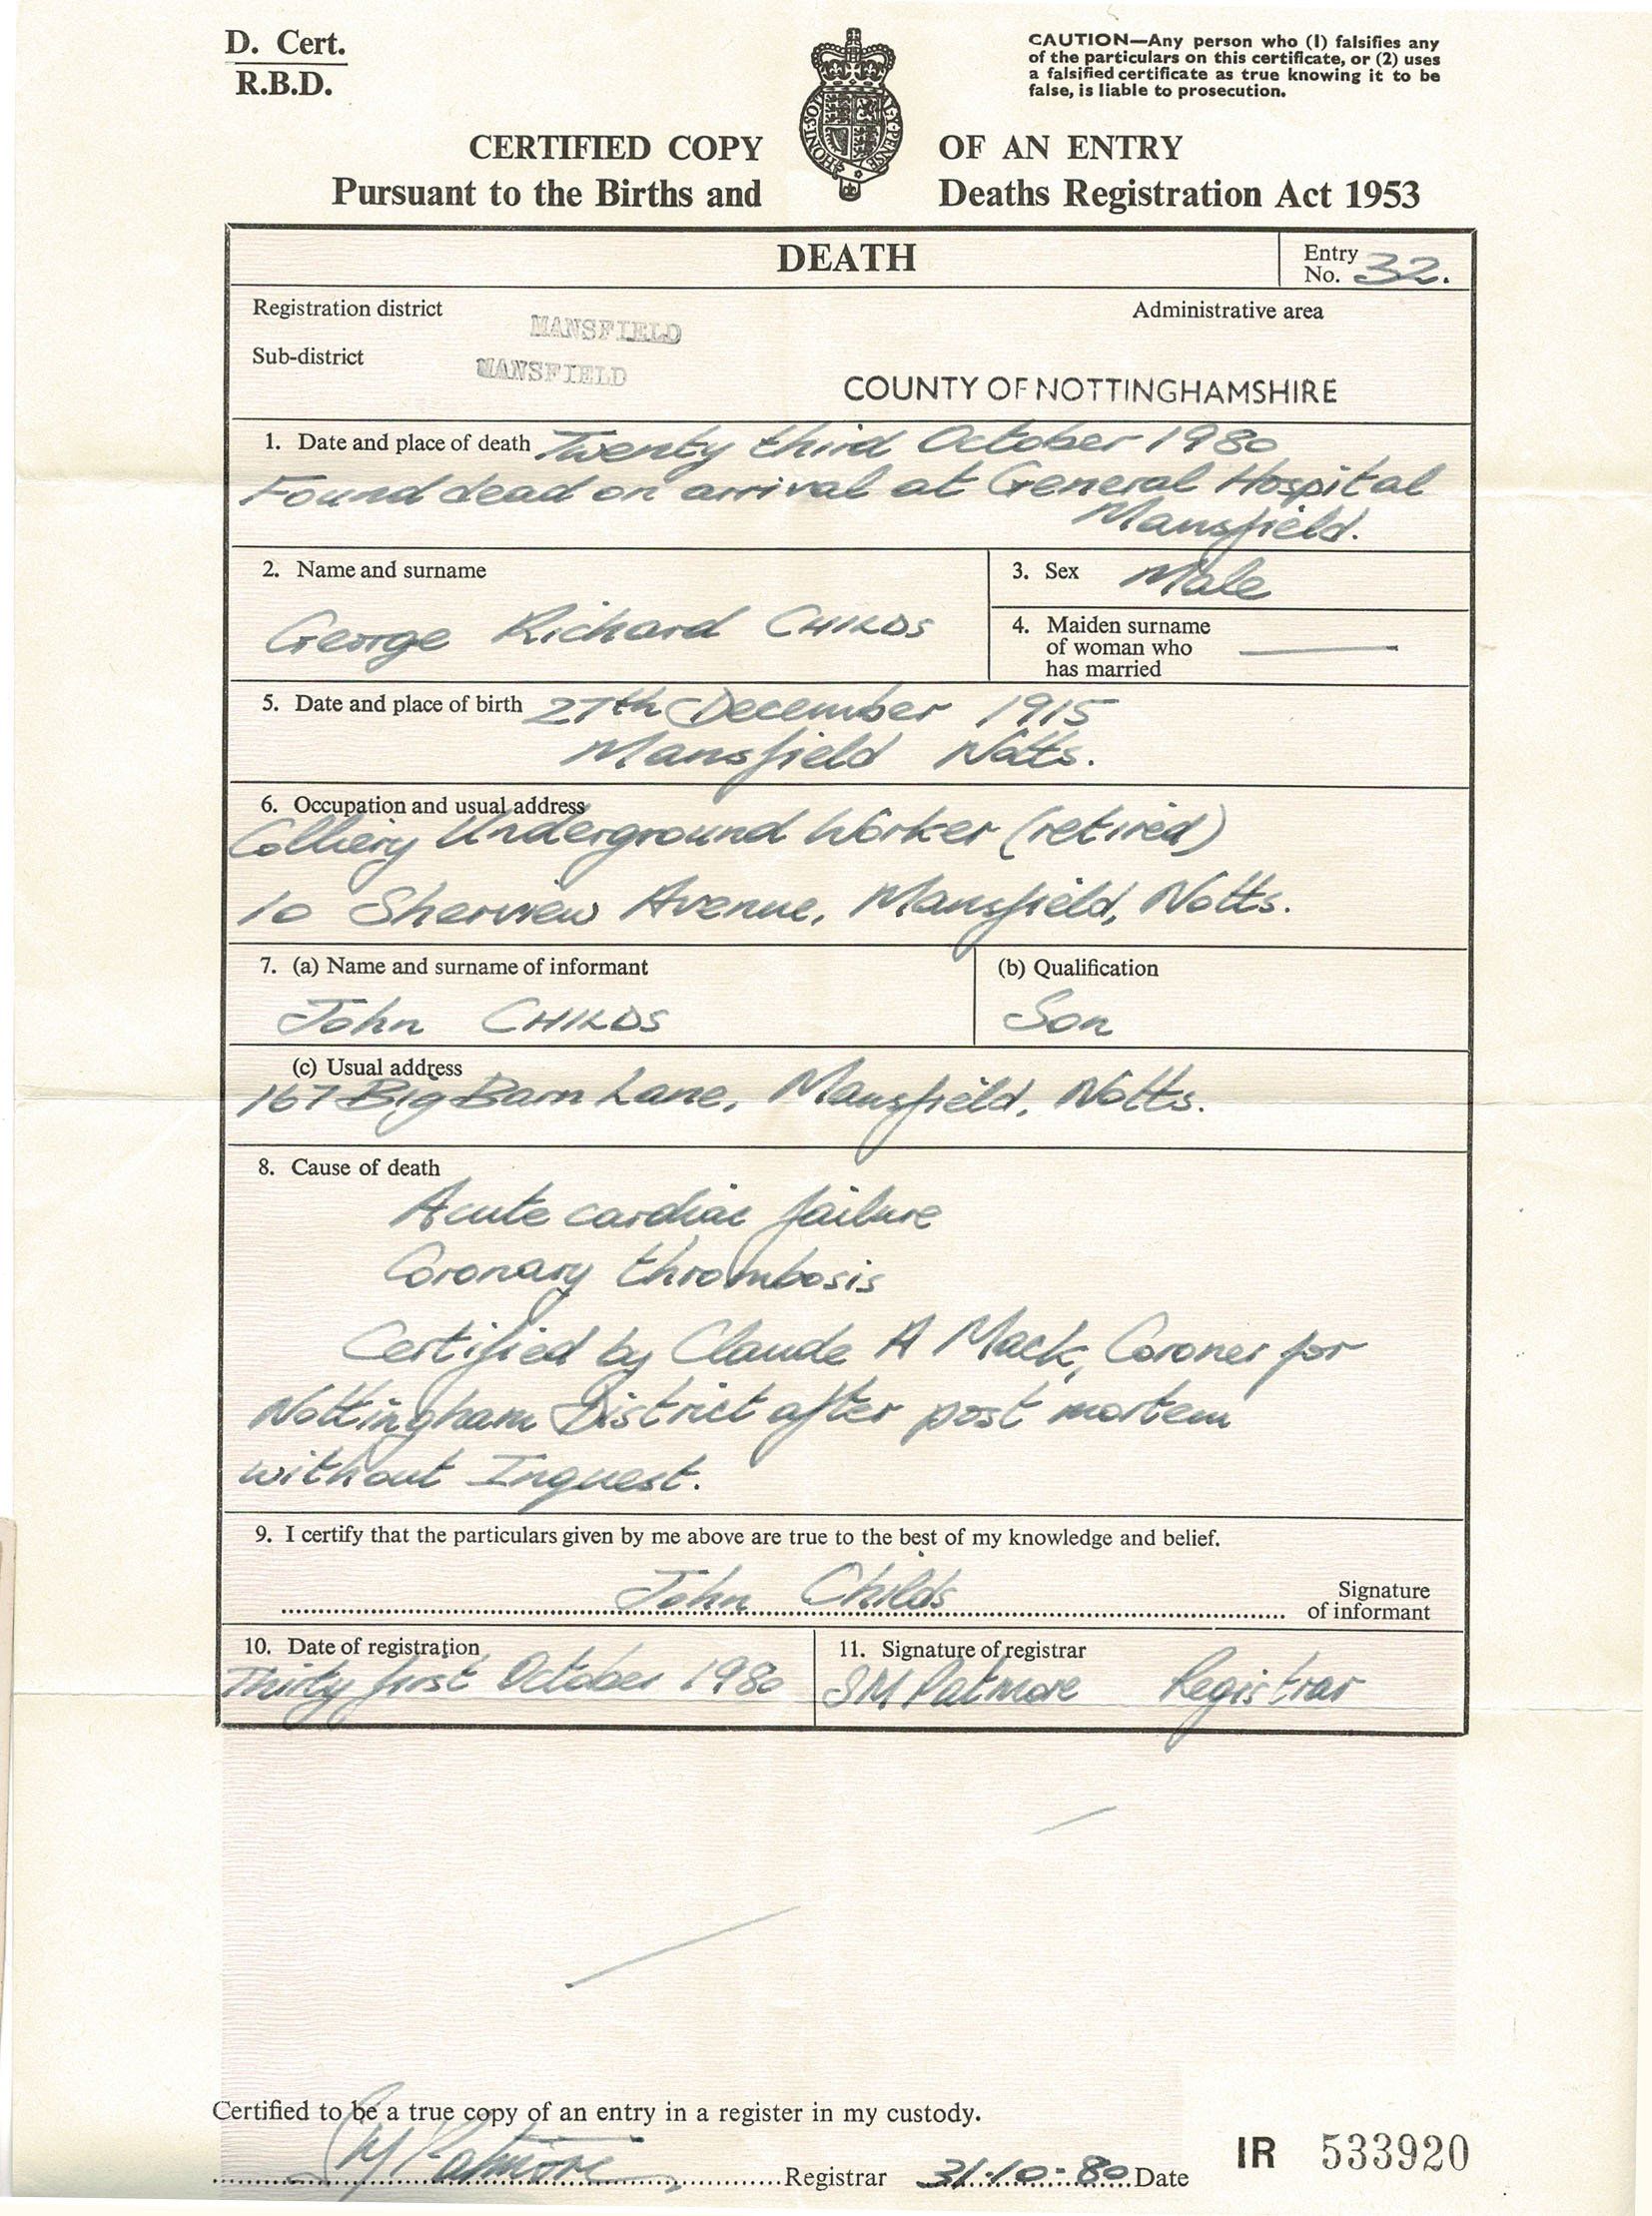 D. Cert.
R.B.D.
CAUTION—Any person who (1) falsifies any
of the particulars on this certificate, or (2) uses
a falsified certificate as true knowing it to be
false, is liable to prosecution.
CERTIFIED COPY OF AN ENTRY
Pursuant to the Births and Deaths Registration Act 1953
DEATH
Entry No. 32.
Registration district MANSFIELD
Administrative area
Sub-district MANSFIELD
COUNTY OF NOTTINGHAMSHIRE
1. Date and place of death Twenty third October 1980
Found dead on arrival at General Hospital
Mansfield.
2. Name and surname
George Richard CHILDS
3. Sex Male
4. Maiden surname
of woman who
has married
5. Date and place of birth 27th December 1915
Mansfield Notts.
6. Occupation and usual address
Colliery Underground Worker (retired)
10 Sherview Avenue, Mansfield, Notts.
7. (a) Name and surname of informant
John CHILDS
(b) Qualification
Son
(c) Usual address
167 Big Barn Lane, Mansfield, Notts.
8. Cause of death
Acute cardiac failure
Coronary thrombosis
Certified by Claude A Mack, Coroner for
Nottingham District after post mortem
without Inquest.
9. I certify that the particulars given by me above are true to the best of my knowledge and belief.
John Childs
Signature
of informant
10. Date of registration
Thirty first October 1980
11. Signature of registrar
SM Patmore Registrar
Certified to be a true copy of an entry in a register in my custody.
SM Patmore Registrar 31.10.80 Date
IR 533920